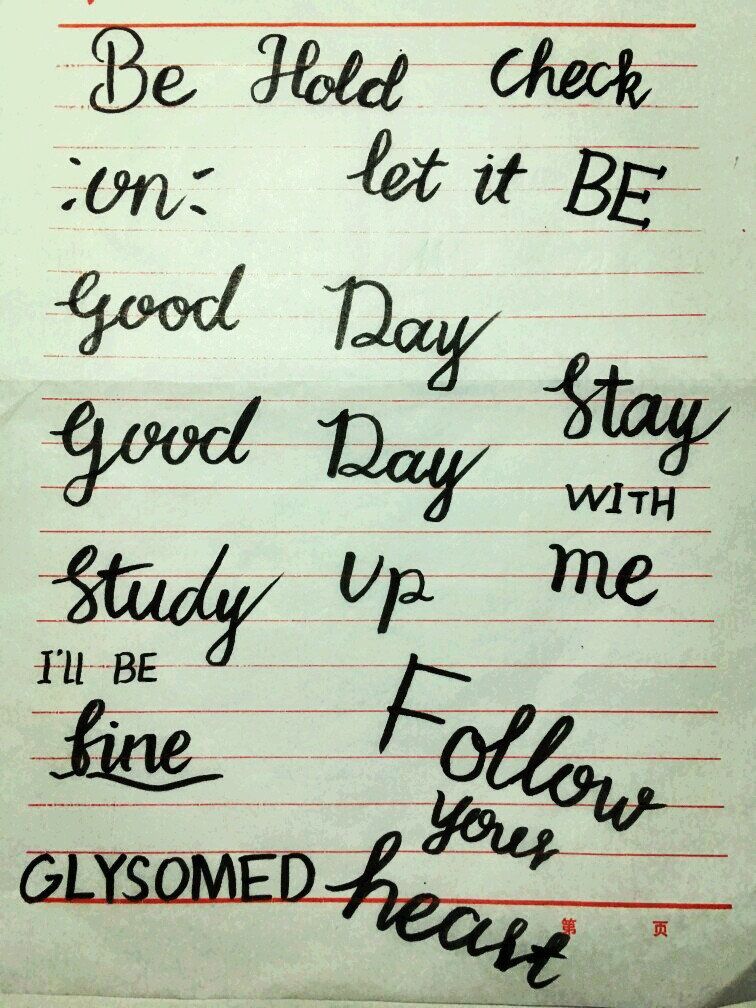 Be Hold check
:on: let it BE
Good Day
Good Day
Stay
WITH
me
Study Up
I'll BE
fine
Follow
your
heart
GLYSOMED
第 页